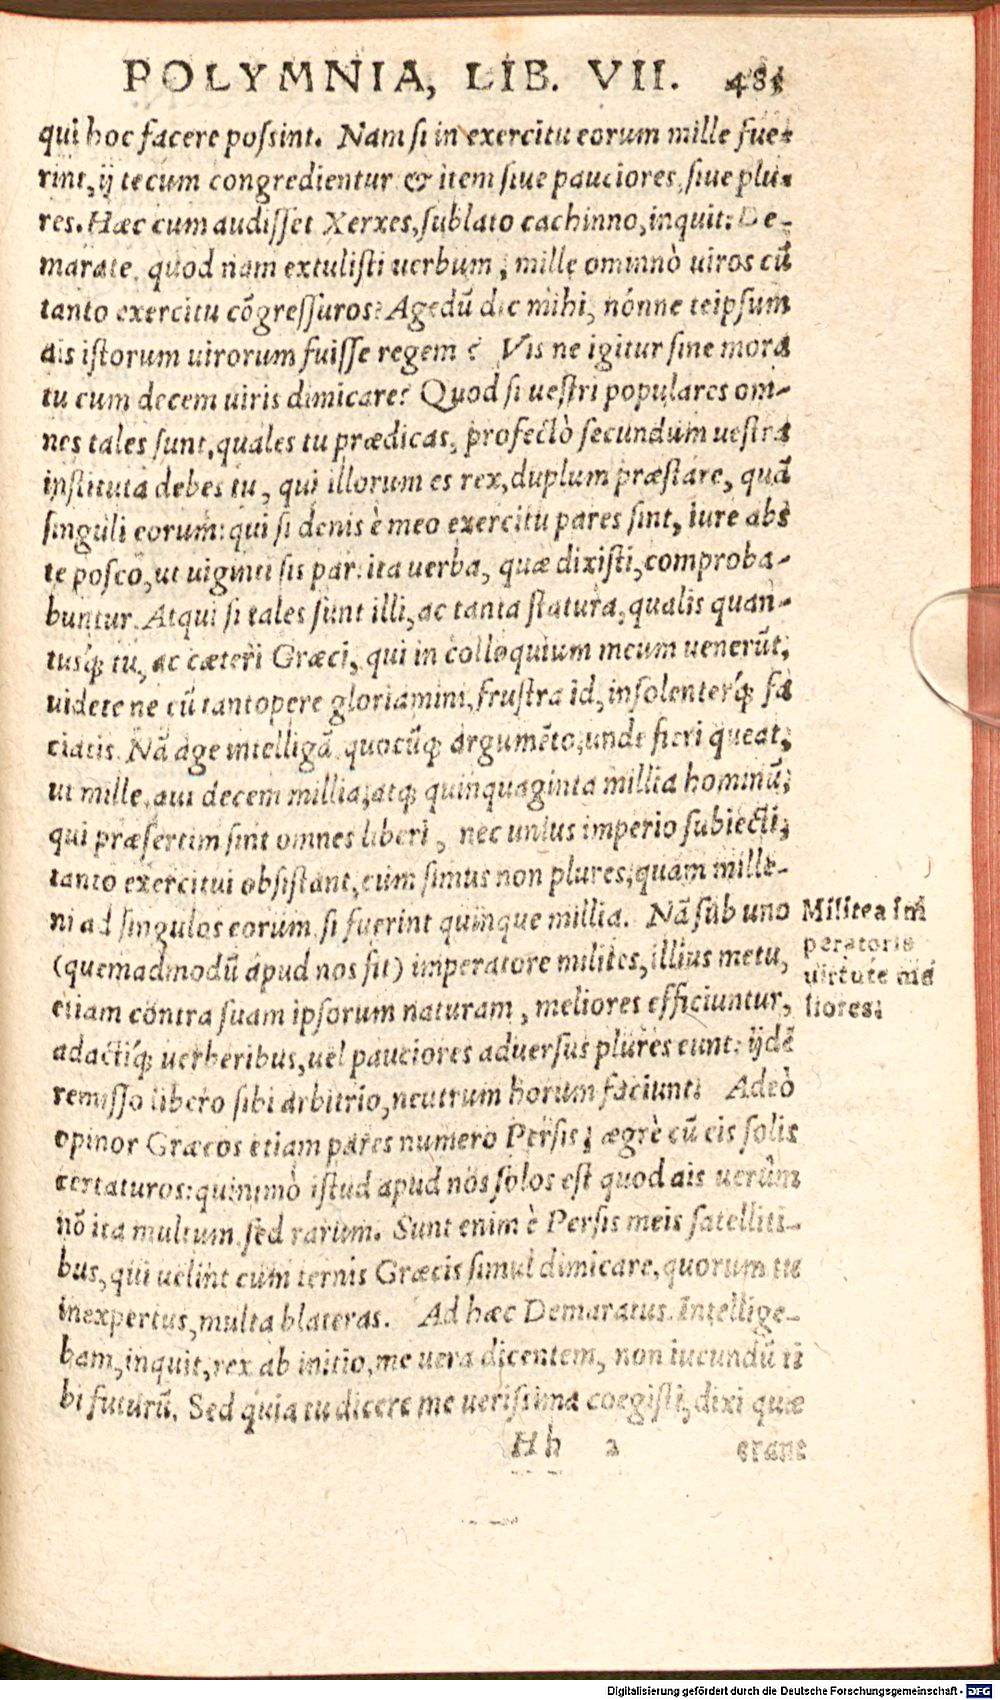 POLYMNIA, LIB. VII. 485
qui hoc facere poſsint. Nam ſi in exercitu eorum mille fue-
rint, ij tecum congredientur & item ſiue pauciores, ſiue plu-
res. Hæc cum audiſſet Xerxes, ſublato cachinno, inquit: De-
marate, quod nam extuliſti uerbum, mille omninò uiros cũ
tanto exercitu cõgreſſuros? Agedũ dic mihi, nónne teipſum
ais iſtorum uirorum fuiſſe regem? Vis ne igitur ſine mora
tu cum decem uiris dimicare? Quod ſi ueſtri populares om-
nes tales ſunt, quales tu prædicas, profectò ſecundum ueſtra
inſtituta debes tu, qui illorum es rex, duplum præſtare, quã
ſinguli eorum: qui ſi denis è meo exercitu pares ſint, iure abs
te poſco, ut uiginti ſis par: ita uerba, quæ dixiſti, comproba-
buntur. Atqui ſi tales ſunt illi, ac tanta ſtatura, qualis quan-
tusq́; tu, ac cæteri Græci, qui in colloquium meum uenerũt,
uidete ne cũ tantopere gloriamini, fruſtra id, inſolenterq́; fa
ciatis. Nã age intelligã quocũq; argumẽto, unde fieri queat,
ut mille, aut decem millia, atq; quinquaginta millia hominũ,
qui præſertim ſint omnes liberi, nec unius imperio ſubiecti,
tanto exercitui obſiſtant, cùm ſimus non plures, quam mille-
ni ad ſingulos eorum ſi fuerint quinque millia. Nã ſub uno
(quemadmodũ apud nos fit) imperatore milites, illius metu,
etiam contra ſuam ipſorum naturam, meliores efficiuntur,
adactiq́; uerberibus, uel pauciores aduerſus plures eunt: ijdẽ
remiſſo libero ſibi arbitrio, neutrum horum faciunt. Adeò
opinor Græcos etiam pares numero Perſis, ægrè cũ eis ſolis
certaturos: quinimò iſtud apud nos ſolos eſt quod ais uerũm
nõ ita multum ſed rarum. Sunt enim è Perſis meis ſatelliti-
bus, qui uelint cùm ternis Græcis ſimul dimicare, quorum tu
inexpertus, multa blateras. Ad hæc Demaratus. Intellige-
bam, inquit, rex ab initio, me uera dicentem, non iucundũ ti
bi futurũ. Sed quia tu dicere me ueriſsima coegiſti, dixi quæ
Hh 2 erant
Milites im
peratoris
uirtute me
liores.
Digitalisierung gefördert durch die Deutsche Forschungsgemeinschaft - DFG